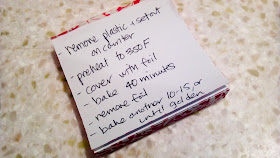 - remove plastic & set out
on counter
- preheat to 350F
- cover with foil
- bake 40 minutes
- remove foil
- bake another 10-15, or
until golden